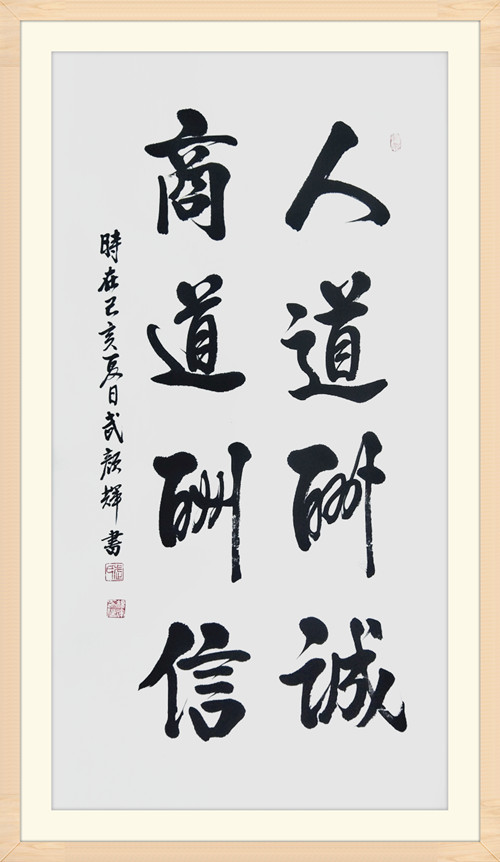 人道酬誠
商道酬信
時在己亥夏日武顏輝書